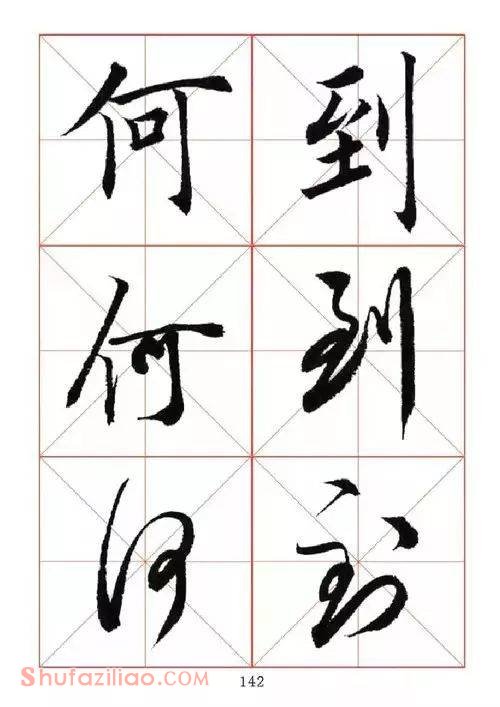 何 到
何 到
何 到
Shufaziliao.com 142